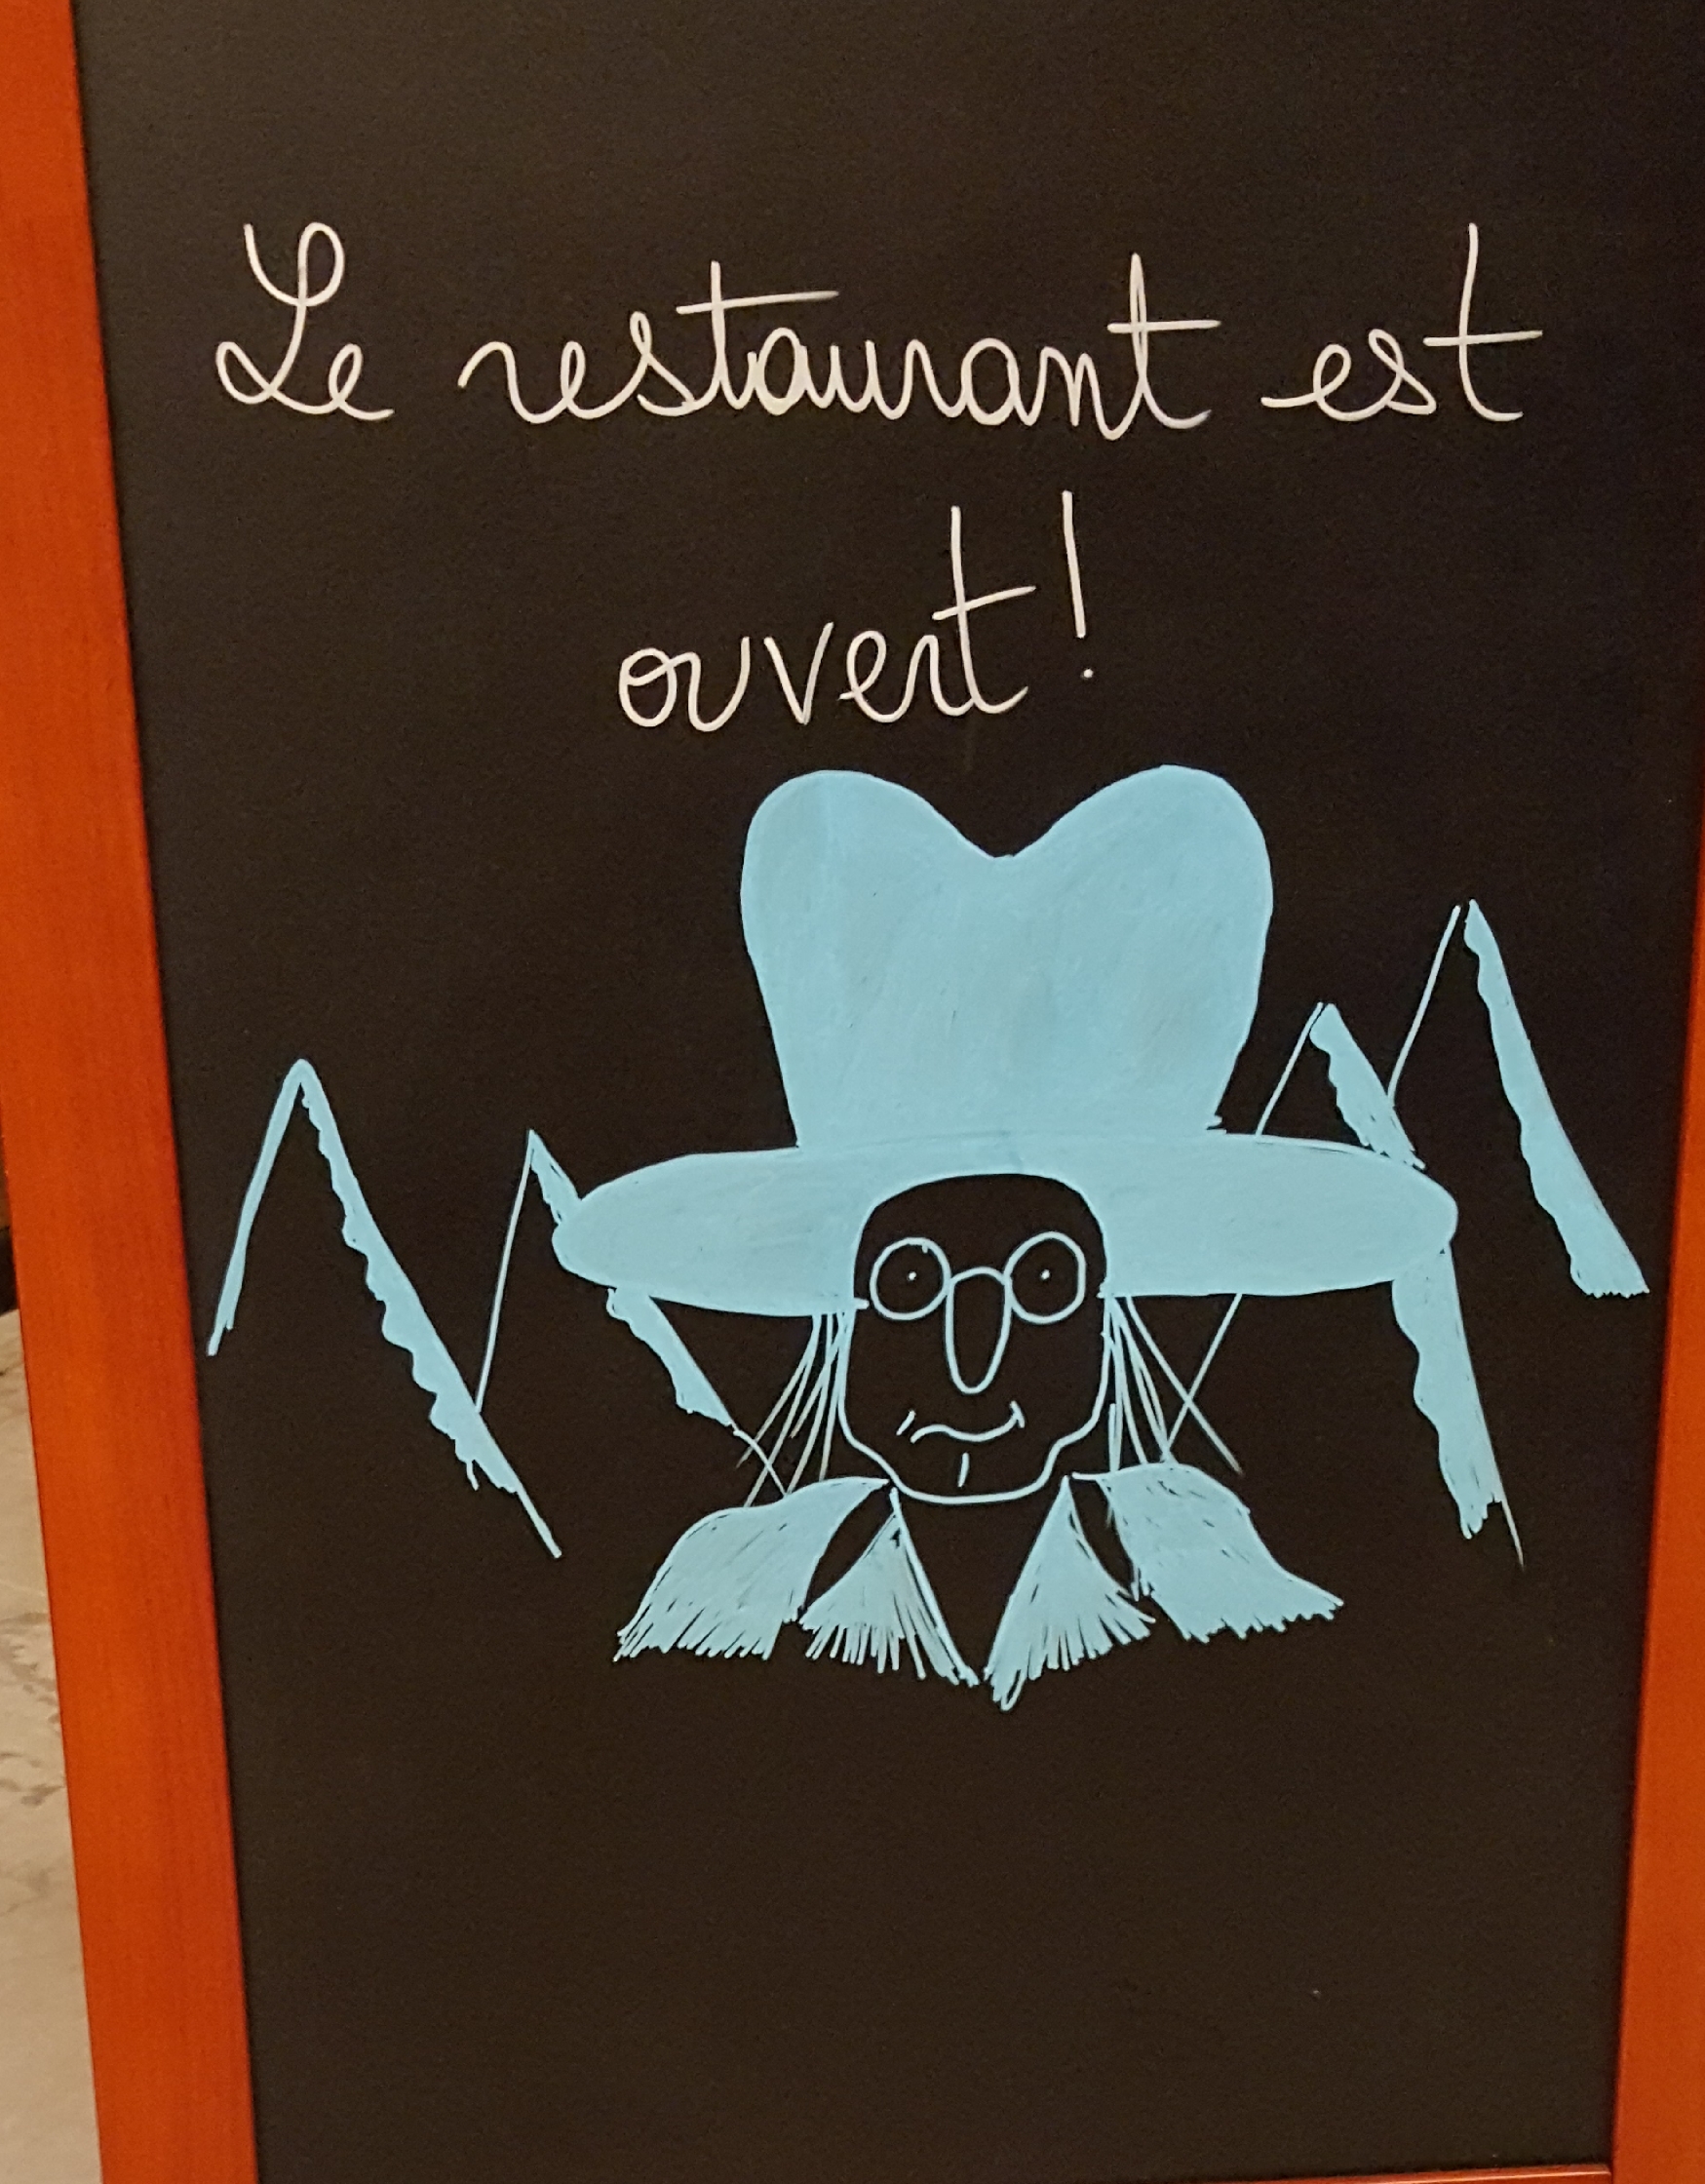 Le restaurant est
ouvert !